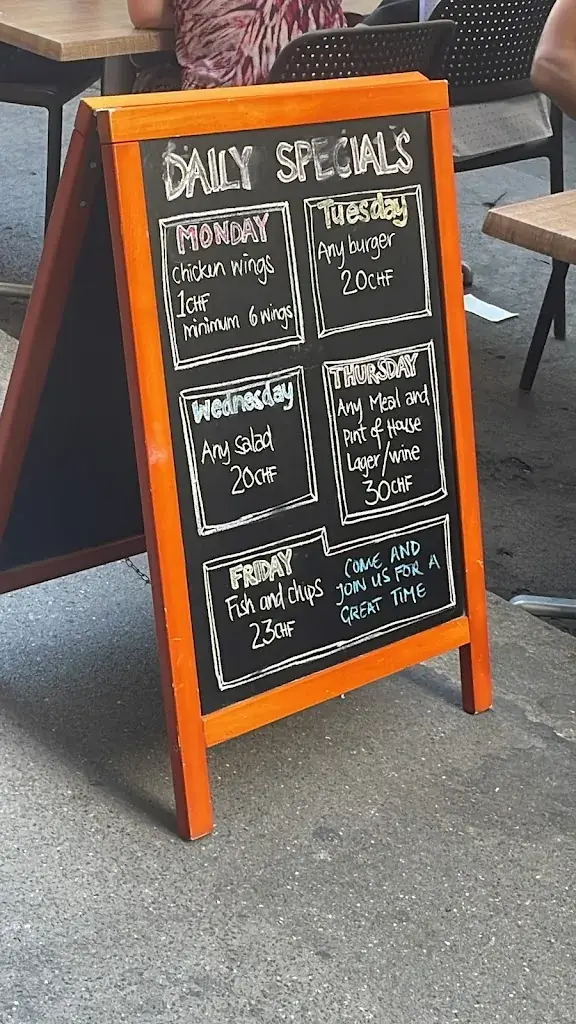 DAILY SPECIALS
MONDAY
chicken wings
1CHF
minimum 6 wings
Tuesday
Any burger
20CHF
Wednesday
Any salad
20CHF
THURSDAY
Any Meal and
pint of House
Lager/wine
30CHF
FRIDAY
Fish and chips
23CHF
COME AND
JOIN US FOR A
GREAT TIME